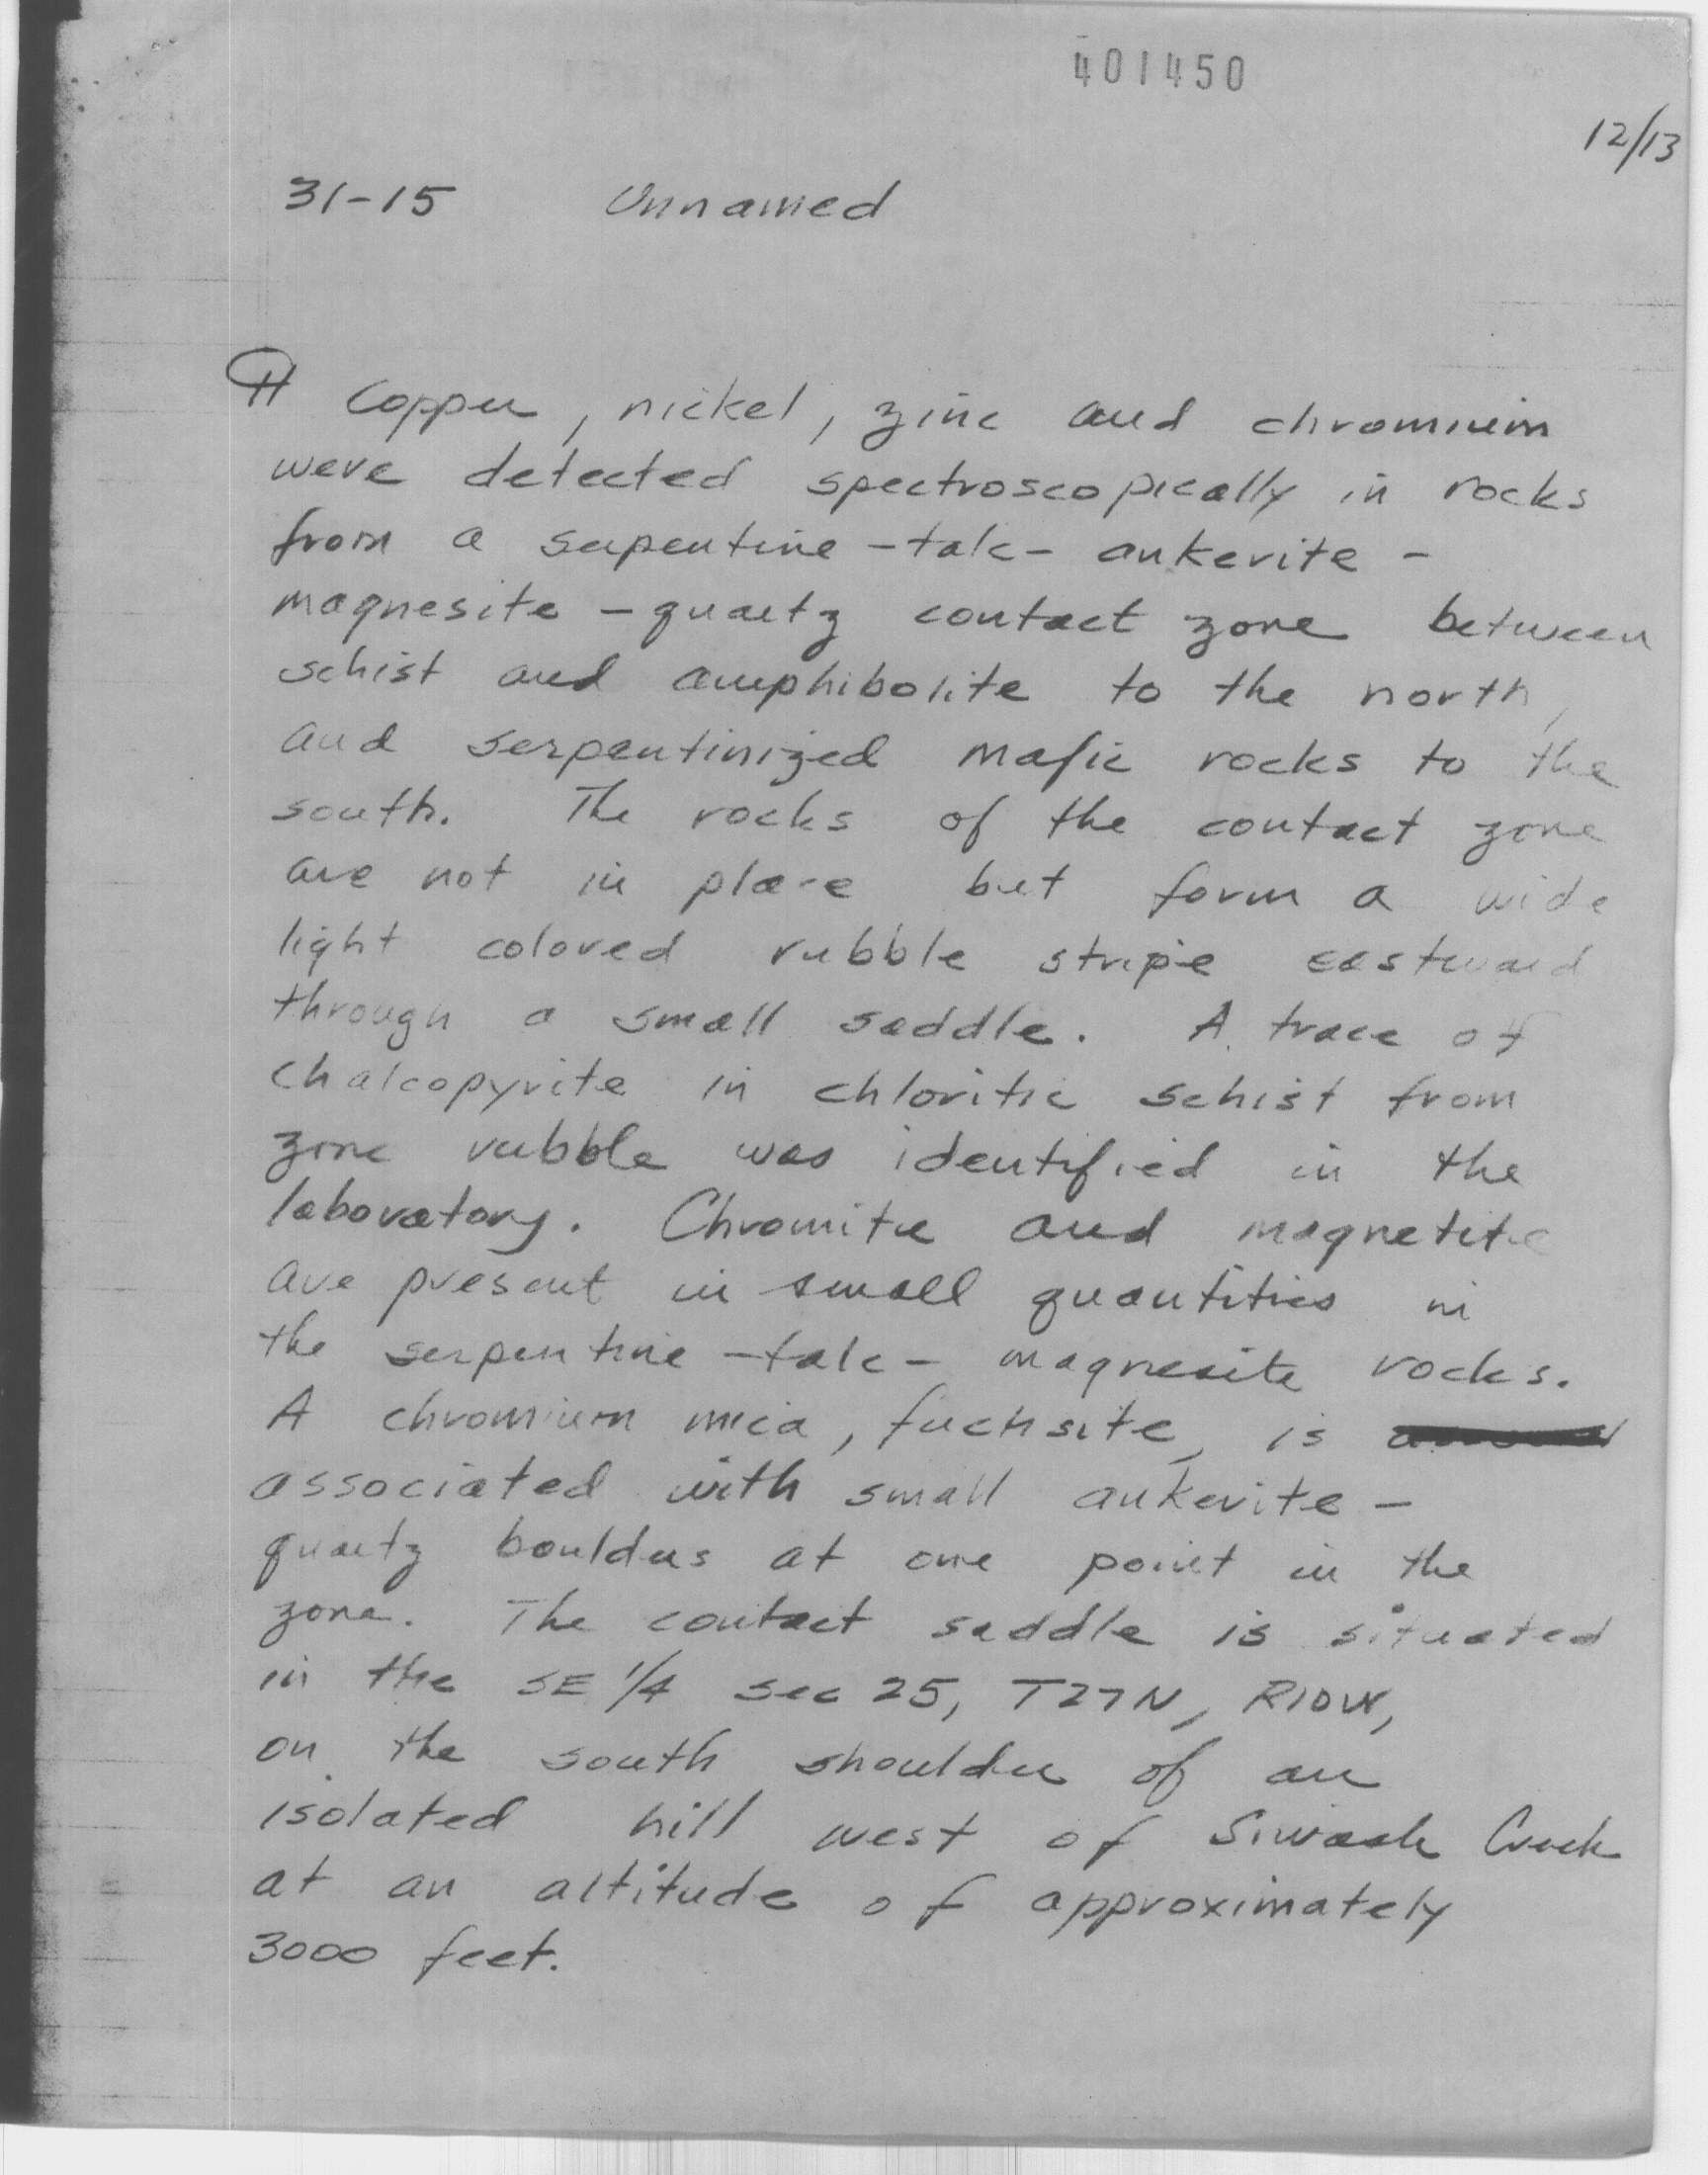 401450
12/13
31-15 Unnamed
¶ Copper, nickel, zinc and chromium
were detected spectroscopically in rocks
from a serpentine - talc - ankerite -
magnesite - quartz contact zone between
schist and amphibolite to the north,
and serpentinized mafic rocks to the
south. The rocks of the contact zone
are not in place but form a wide
light colored rubble stripe eastward
through a small saddle. A trace of
chalcopyrite in chloritic schist from
zone rubble was identified in the
laboratory. Chromite and magnetite
are present in small quantities in
the serpentine - talc - magnesite rocks.
A chromium mica, fuchsite, is
associated with small ankerite -
quartz boulders at one point in the
zone. The contact saddle is situated
in the SE 1/4 sec 25, T27N, R10W,
on the south shoulder of an
isolated hill west of Siwash Creek
at an altitude of approximately
3000 feet.